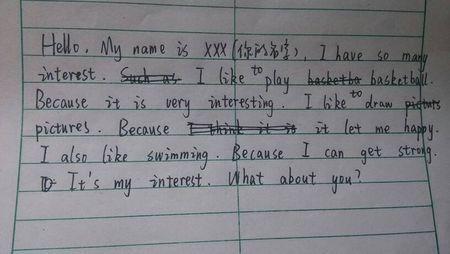 Hello. My name is XXX (你的名字), I have so many
interest. Such as I like to play basketba basketball.
Because it is very interesting. I like to draw pictuts
pictures. Because I think it is it let me happy.
I also like swimming. Because I can get strong.
It's my interest. What about you?